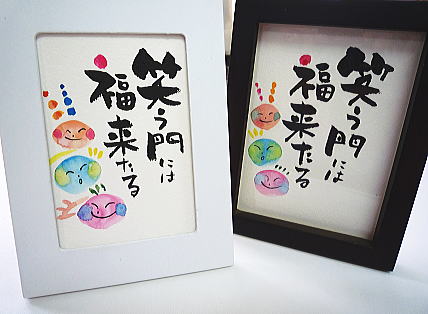 笑う門には
福来たる
笑う門には
福来たる